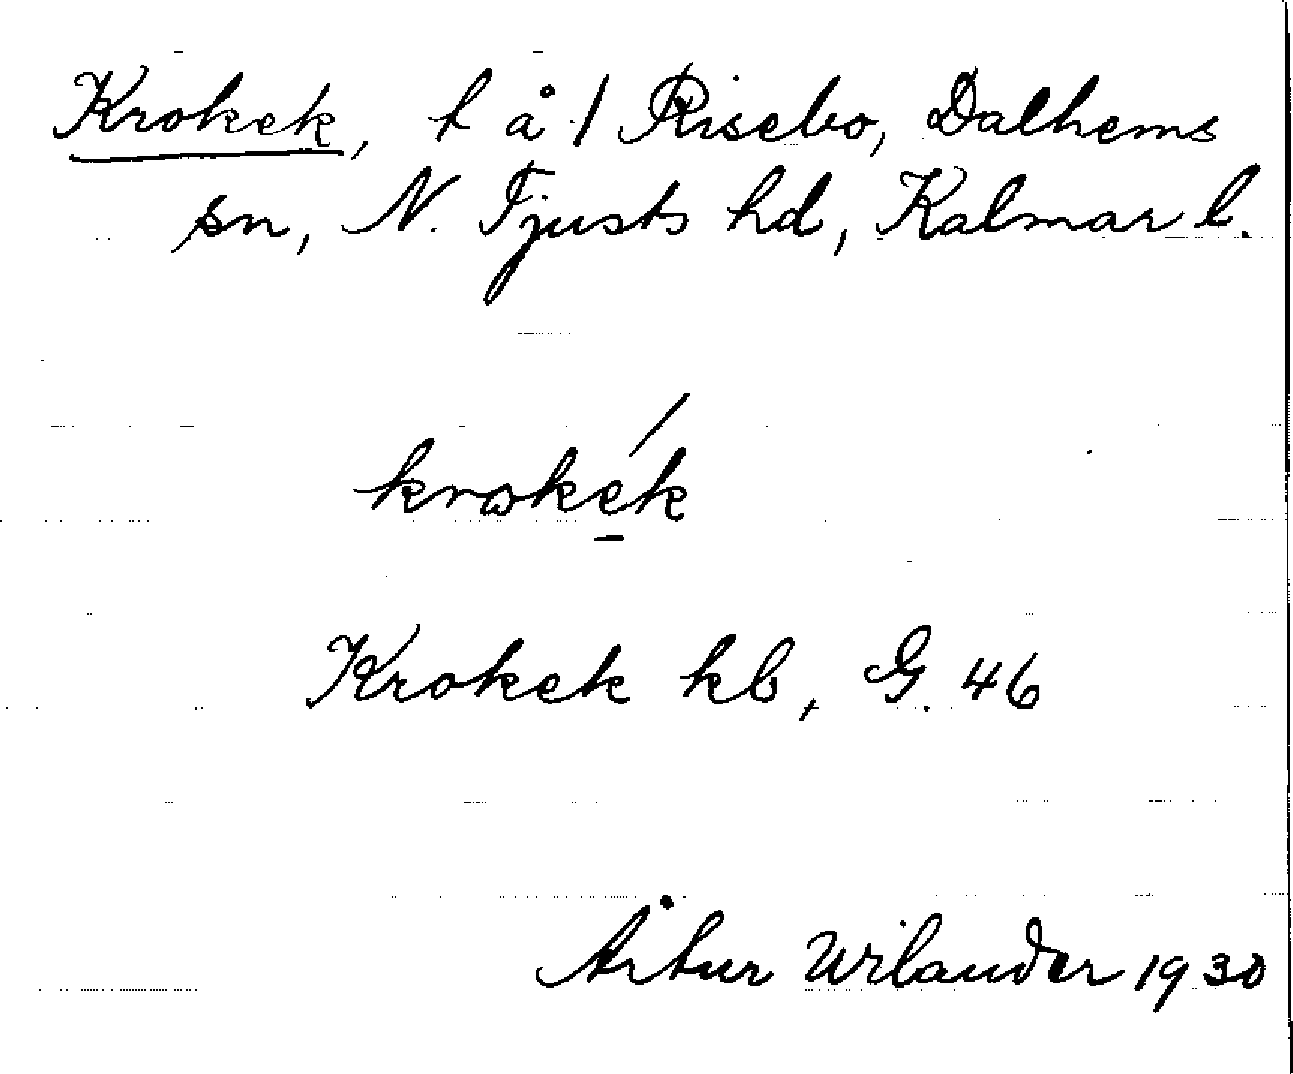 Krokek, t å 1 Risebo, Dalhems
sn, N. Tjusts hd, Kalmar l.
krokék
Krokek kb, G. 46
Artur Wilander 1930